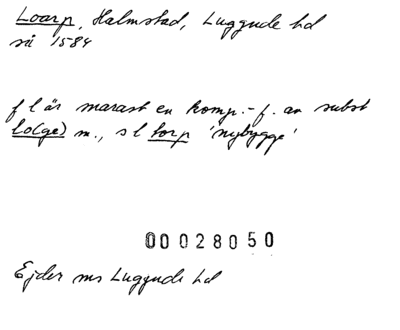 Loarp, Halmstad, Luggude hd
så 1584
f l är marast en komp.-f. av subst
lo(ge) m., s l torp 'nybygge'
00 028050
Ejder ms Luggude hd